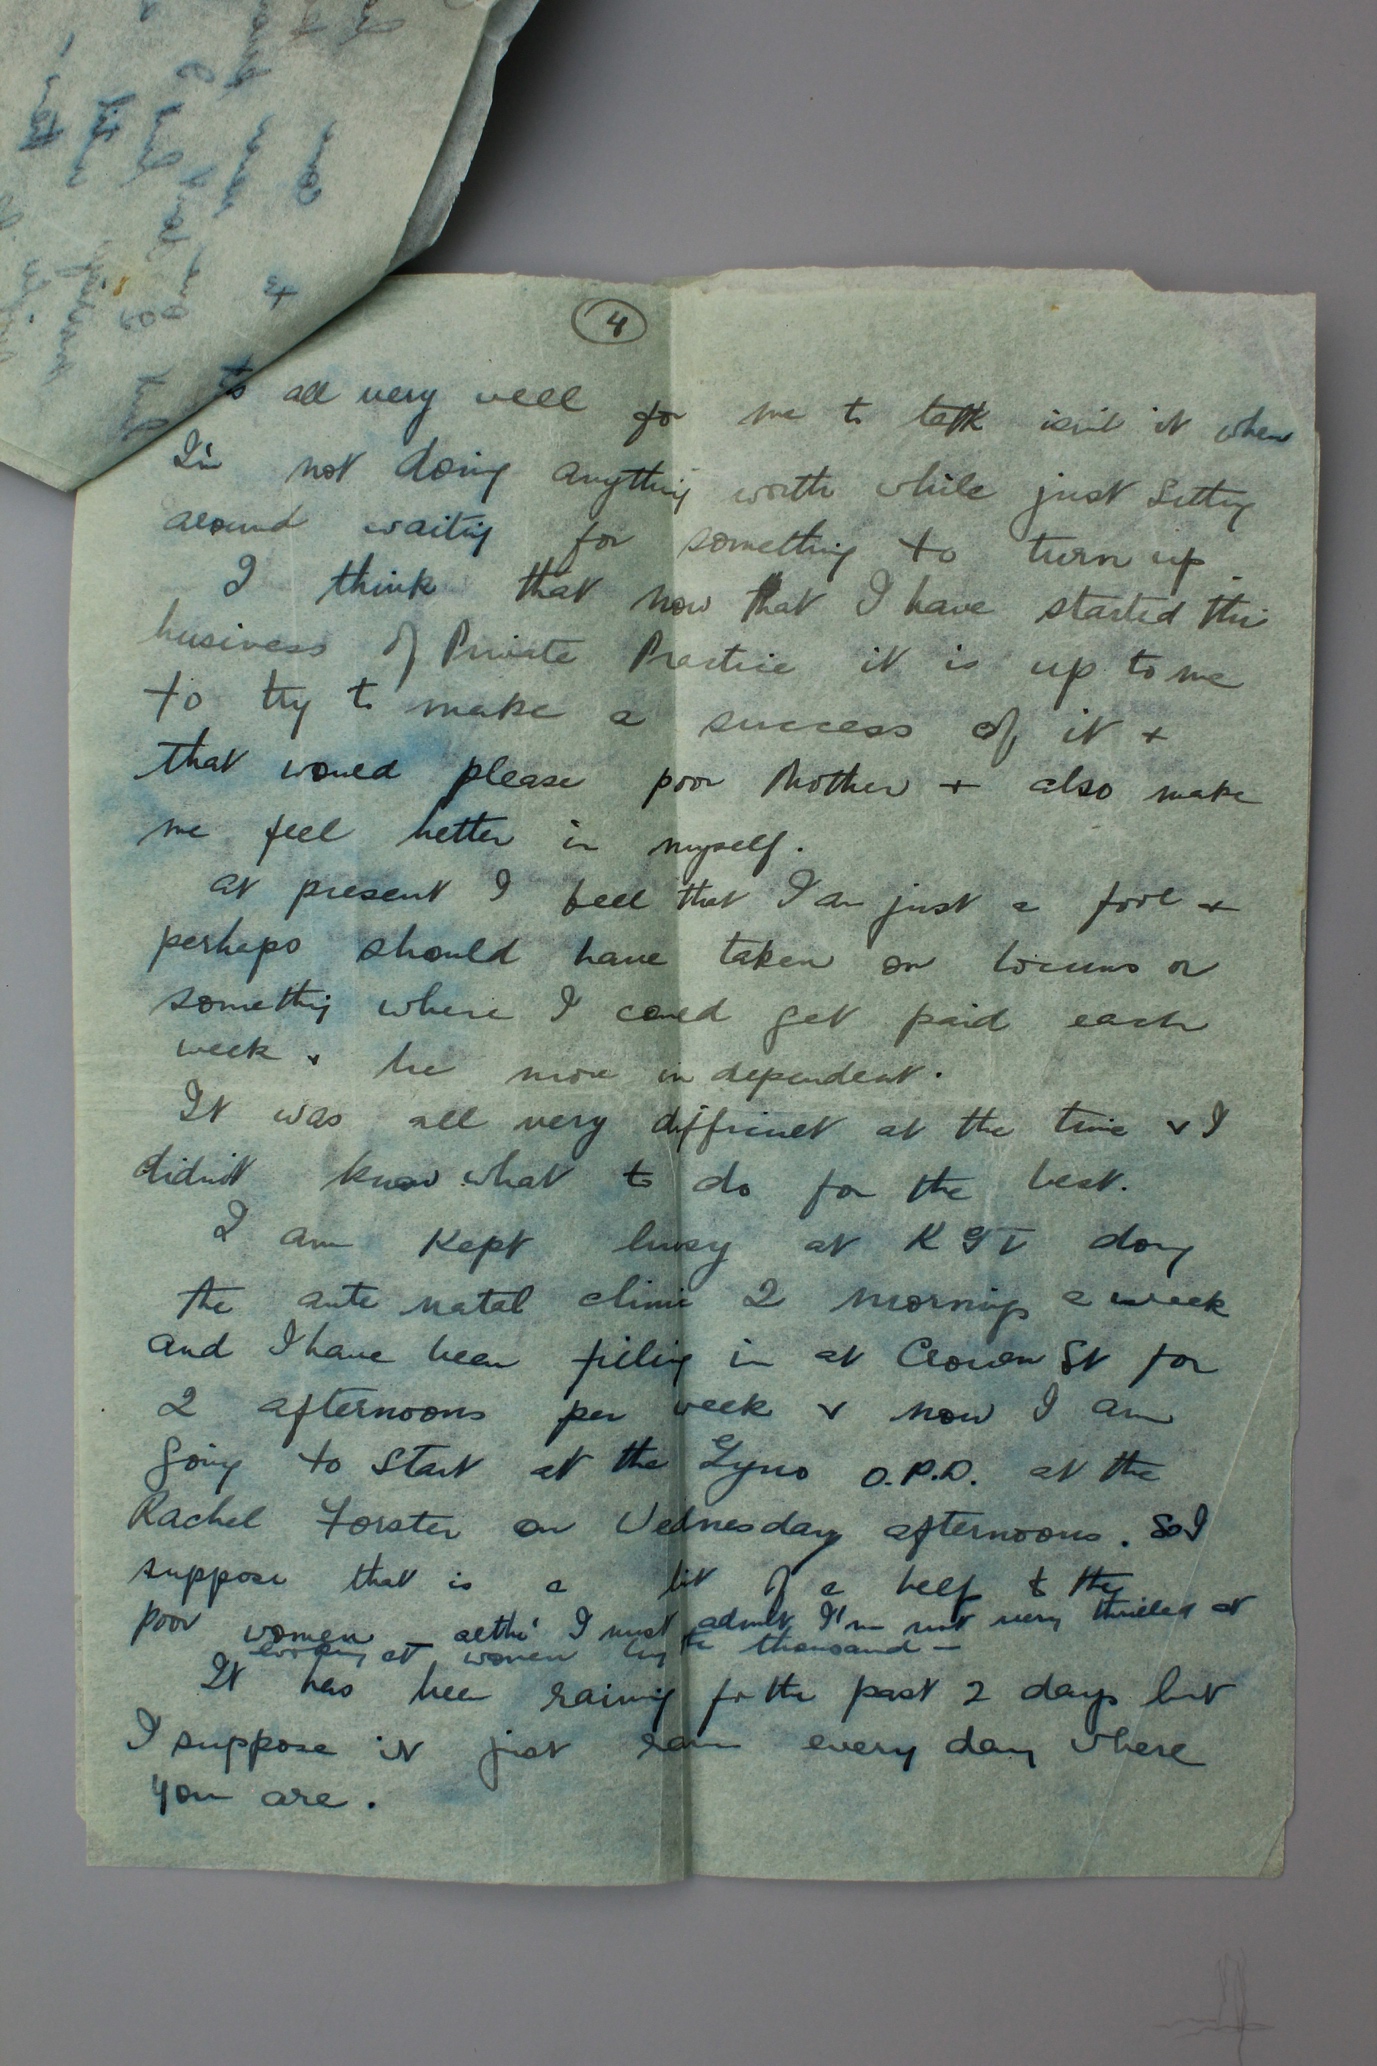 4
all very well for me to talk isn't it when
I'm not doing anything worth while just sitting
around waiting for something to turn up.
I think that now that I have started this
business of Private Practice it is up to me
to try to make a success of it +
that would please poor Mother + also make
me feel better in myself.
At present I feel that I am just a fool +
perhaps should have taken on locums or
something where I could get paid each
week + be more independent.
It was all very difficult at the time + I
didn't know what to do for the best.
I am kept busy at KGV doing
the ante natal clinic 2 mornings a week
and I have been filling in at Crown St for
2 afternoons per week + now I am
going to start at the Gyno O.P.D. at the
Rachel Forster on Wednesday afternoons. So I
suppose that is a bit of a help to the
poor women altho' I must admit I'm not very thrilled at
looking at women by the thousand —
It has been raining for the past 2 days but
I suppose it just rains every day where
you are.